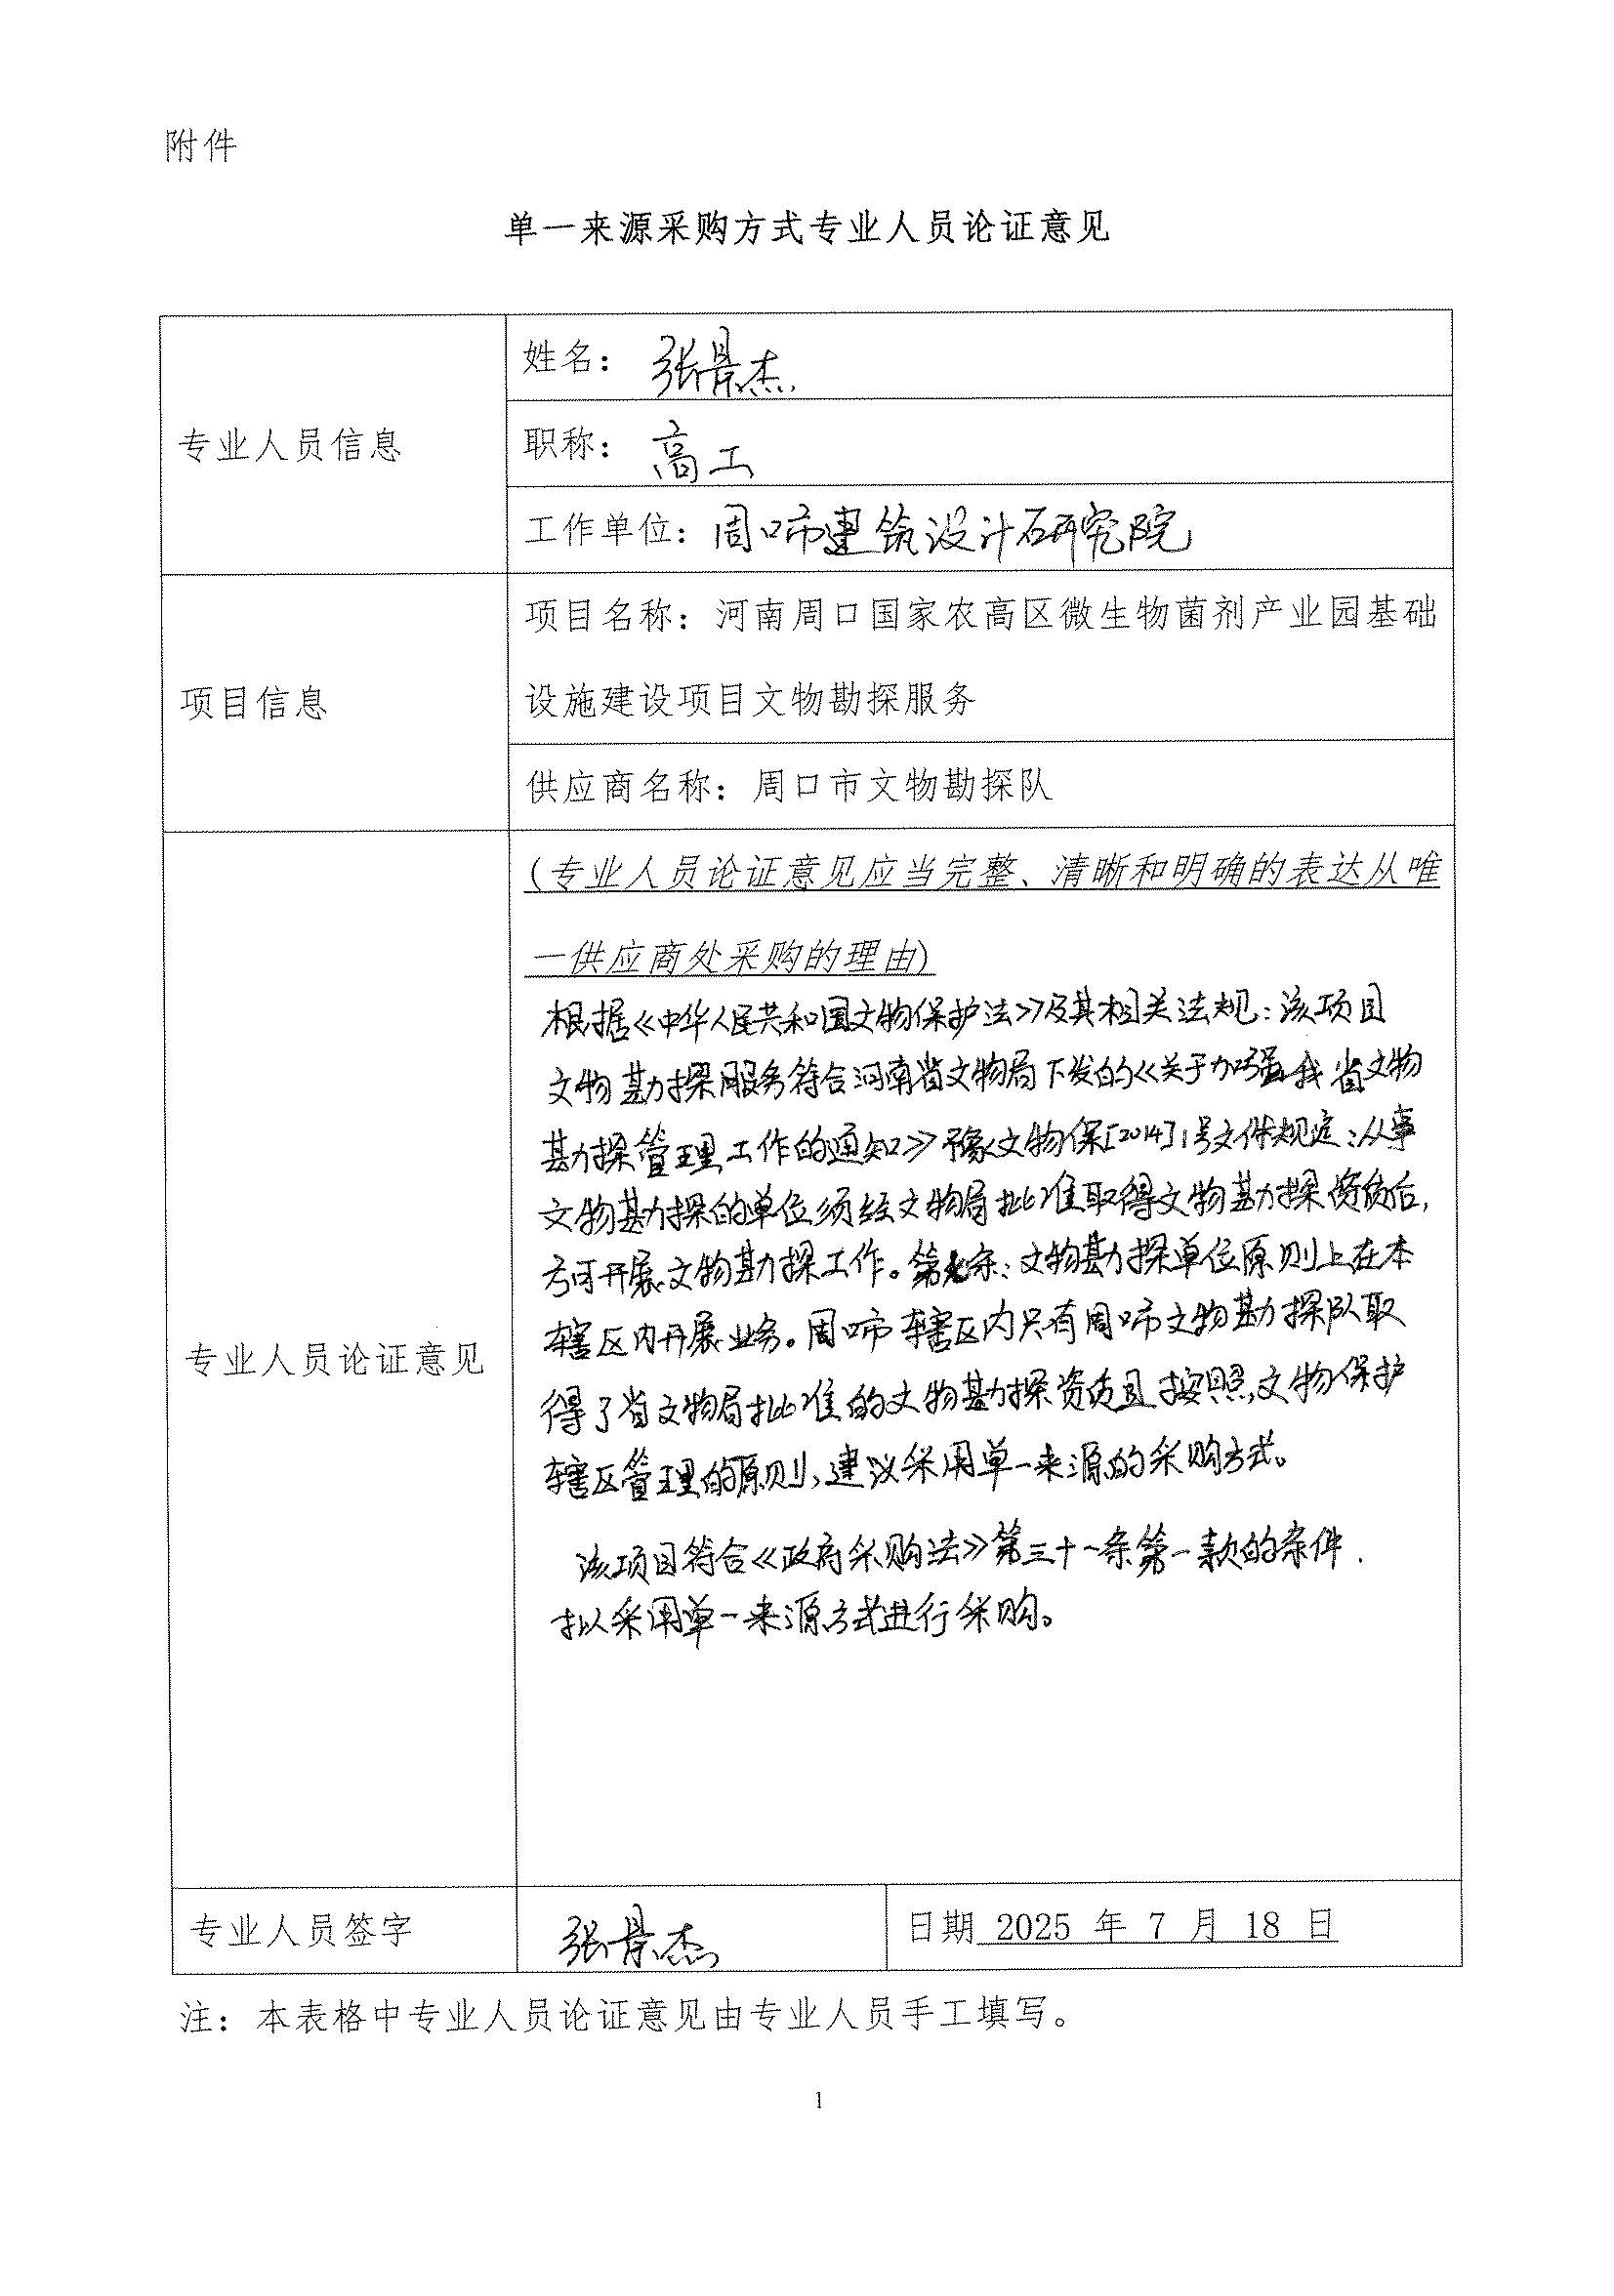 附件
单一来源采购方式专业人员论证意见
专业人员信息
姓名：张景杰
职称：高工
工作单位：周口市建筑设计研究院
项目信息
项目名称：河南周口国家农高区微生物菌剂产业园基础
设施建设项目文物勘探服务
供应商名称：周口市文物勘探队
专业人员论证意见
(专业人员论证意见应当完整、清晰和明确的表达从唯
一供应商处采购的理由)
根据《中华人民共和国文物保护法》及其相关法规：该项目
文物勘探服务符合河南省文物局下发的《关于加强我省文物
勘探管理工作的通知》豫文物保[2014]1号文件规定：从事
文物勘探的单位须经文物局批准取得文物勘探资质后，
方可开展文物勘探工作。第七条：文物勘探单位原则上在本
辖区内开展业务。周口市辖区内只有周口市文物勘探队取
得了省文物局批准的文物勘探资质且按照文物保护
辖区管理的原则，建议采用单一来源的采购方式。
该项目符合《政府采购法》第三十一条第一款的条件.
拟采用单一来源方式进行采购。
专业人员签字
张景杰
日期 2025 年 7 月 18 日
注：本表格中专业人员论证意见由专业人员手工填写。
1